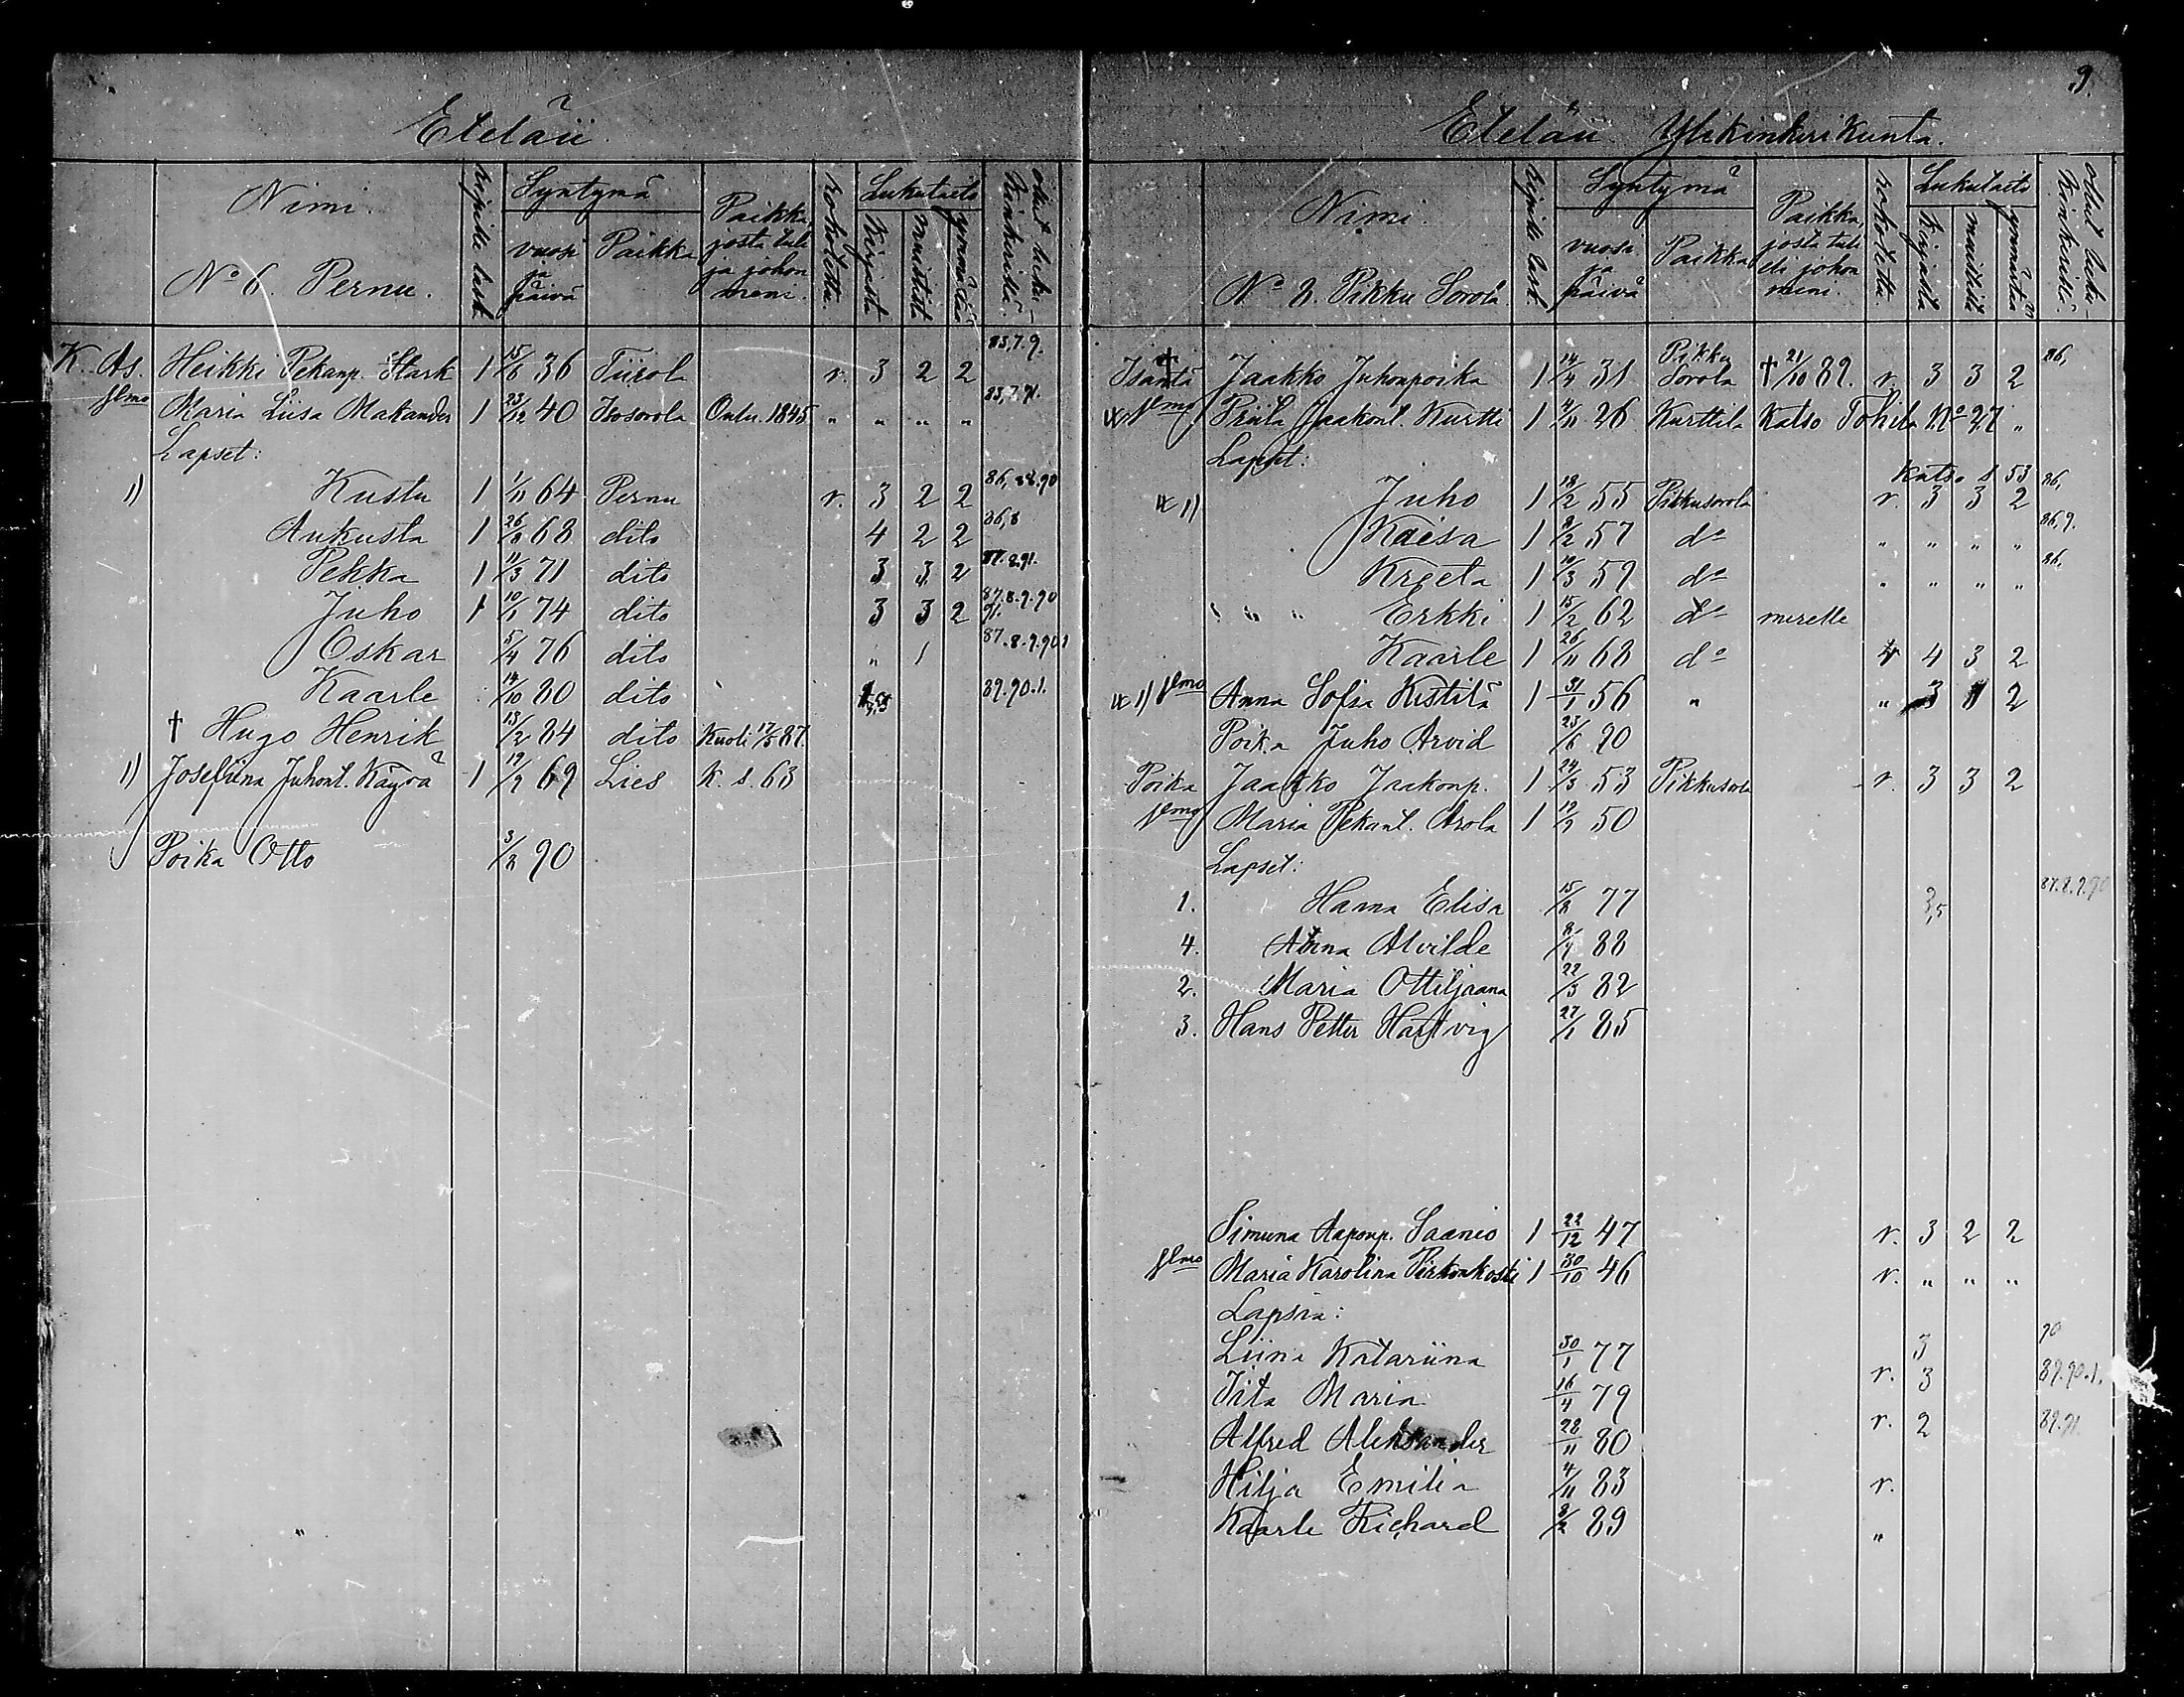 Etelän
Nimi.
No 6. Pernu.
Syntymä
vuosi ja päivä
Paikka
Paikka, josta tuli ja johon meni.
rokotettu.
Lukutaito
Kirjasta
muistista
ymmärtää
K. As. Heikki Pekanp. Stark 1 15/6 36 Tiirola r. 3 2 2 85,7.9.
Maria Liisa Makander 1 23/12 40 Isosorola Oulu. 1845 " " " " 85,7.91.
Lapset:
1) Kustu 1 1/11 64 Pernu r. 3 2 2 86, 88.90
Aukusta 1 26/9 68 dito 4 2 2 86,8
Pekka 1 11/3 71 dito 3 3 2 87.8.91.
Juho 1 10/1 74 dito 3 3 2 87.8.9.90 91.
Oskar 5/4 76 dito " 1 87.8.9.90.1
Kaarle 14/10 80 dito 89.90.1.
† Hugo Henrik 13/2 84 dito Kuoli 17/5 87.
1) Josefiina Juhont. Käyrä 1 19/9 69 Lies K. s. 63
Poika Otto 3/8 90
9.
Etelän Ylikinkerikunta.
Nimi.
No 8. Pikku Sorola.
Syntymä
vuosi ja päivä
Paikka
Paikka, josta tuli eli johon meni.
rokotettu.
Lukutaito
Kirjasta
muistista
ymmärtää
† Isäntä Jaakko Juhonpoika 1 14/4 31 Pikku Sorola † 21/10 89. r. 3 3 2 86,
Priita Jaakont. Kurtti 1 4/11 26 Kurttila Katso Tohila No 27 "
Lapset:
Katso s 53
1) Juho 1 18/2 55 Pikkusorola r. 3 3 2 86,
Kaisa 1 8/2 57 do " " " " 86,9.
Kreeta 1 10/3 59 do " " " " 86,
Erkki 1 15/2 62 do merelle
Kaarle 1 26/11 68 do r 4 3 2
1) Anna Sofia Kistilä 1 31/1 56 " " 3 1 2
Poika Juho Arvid 23/6 90
Poika Jaakko Jaakonp. 1 24/3 53 Pikkusorola r. 3 3 2
Maria Pekant. Arola 1 12/9 50
Lapset:
1. Hanna Elisa 15/8 77 3,5 87.8.9.90
4. Anna Alvilde 8/4 88
2. Maria Ottiljaana 22/3 82
3. Hans Petter Hartvig 27/1 85
Simuna Aaponp. Saanio 1 22/12 47 r. 3 2 2
Maria Karolina Pirkonkoski 1 30/10 46 r. " " "
Lapsia:
Liina Katariina 30/1 77 3 90
Iita Maria 16/4 79 r. 3 89.90.1.
Alfred Aleksander 28/11 80 r. 2 89.91.
Hilja Emilia 4/11 83 r.
Kaarle Richard 8/2 89 "